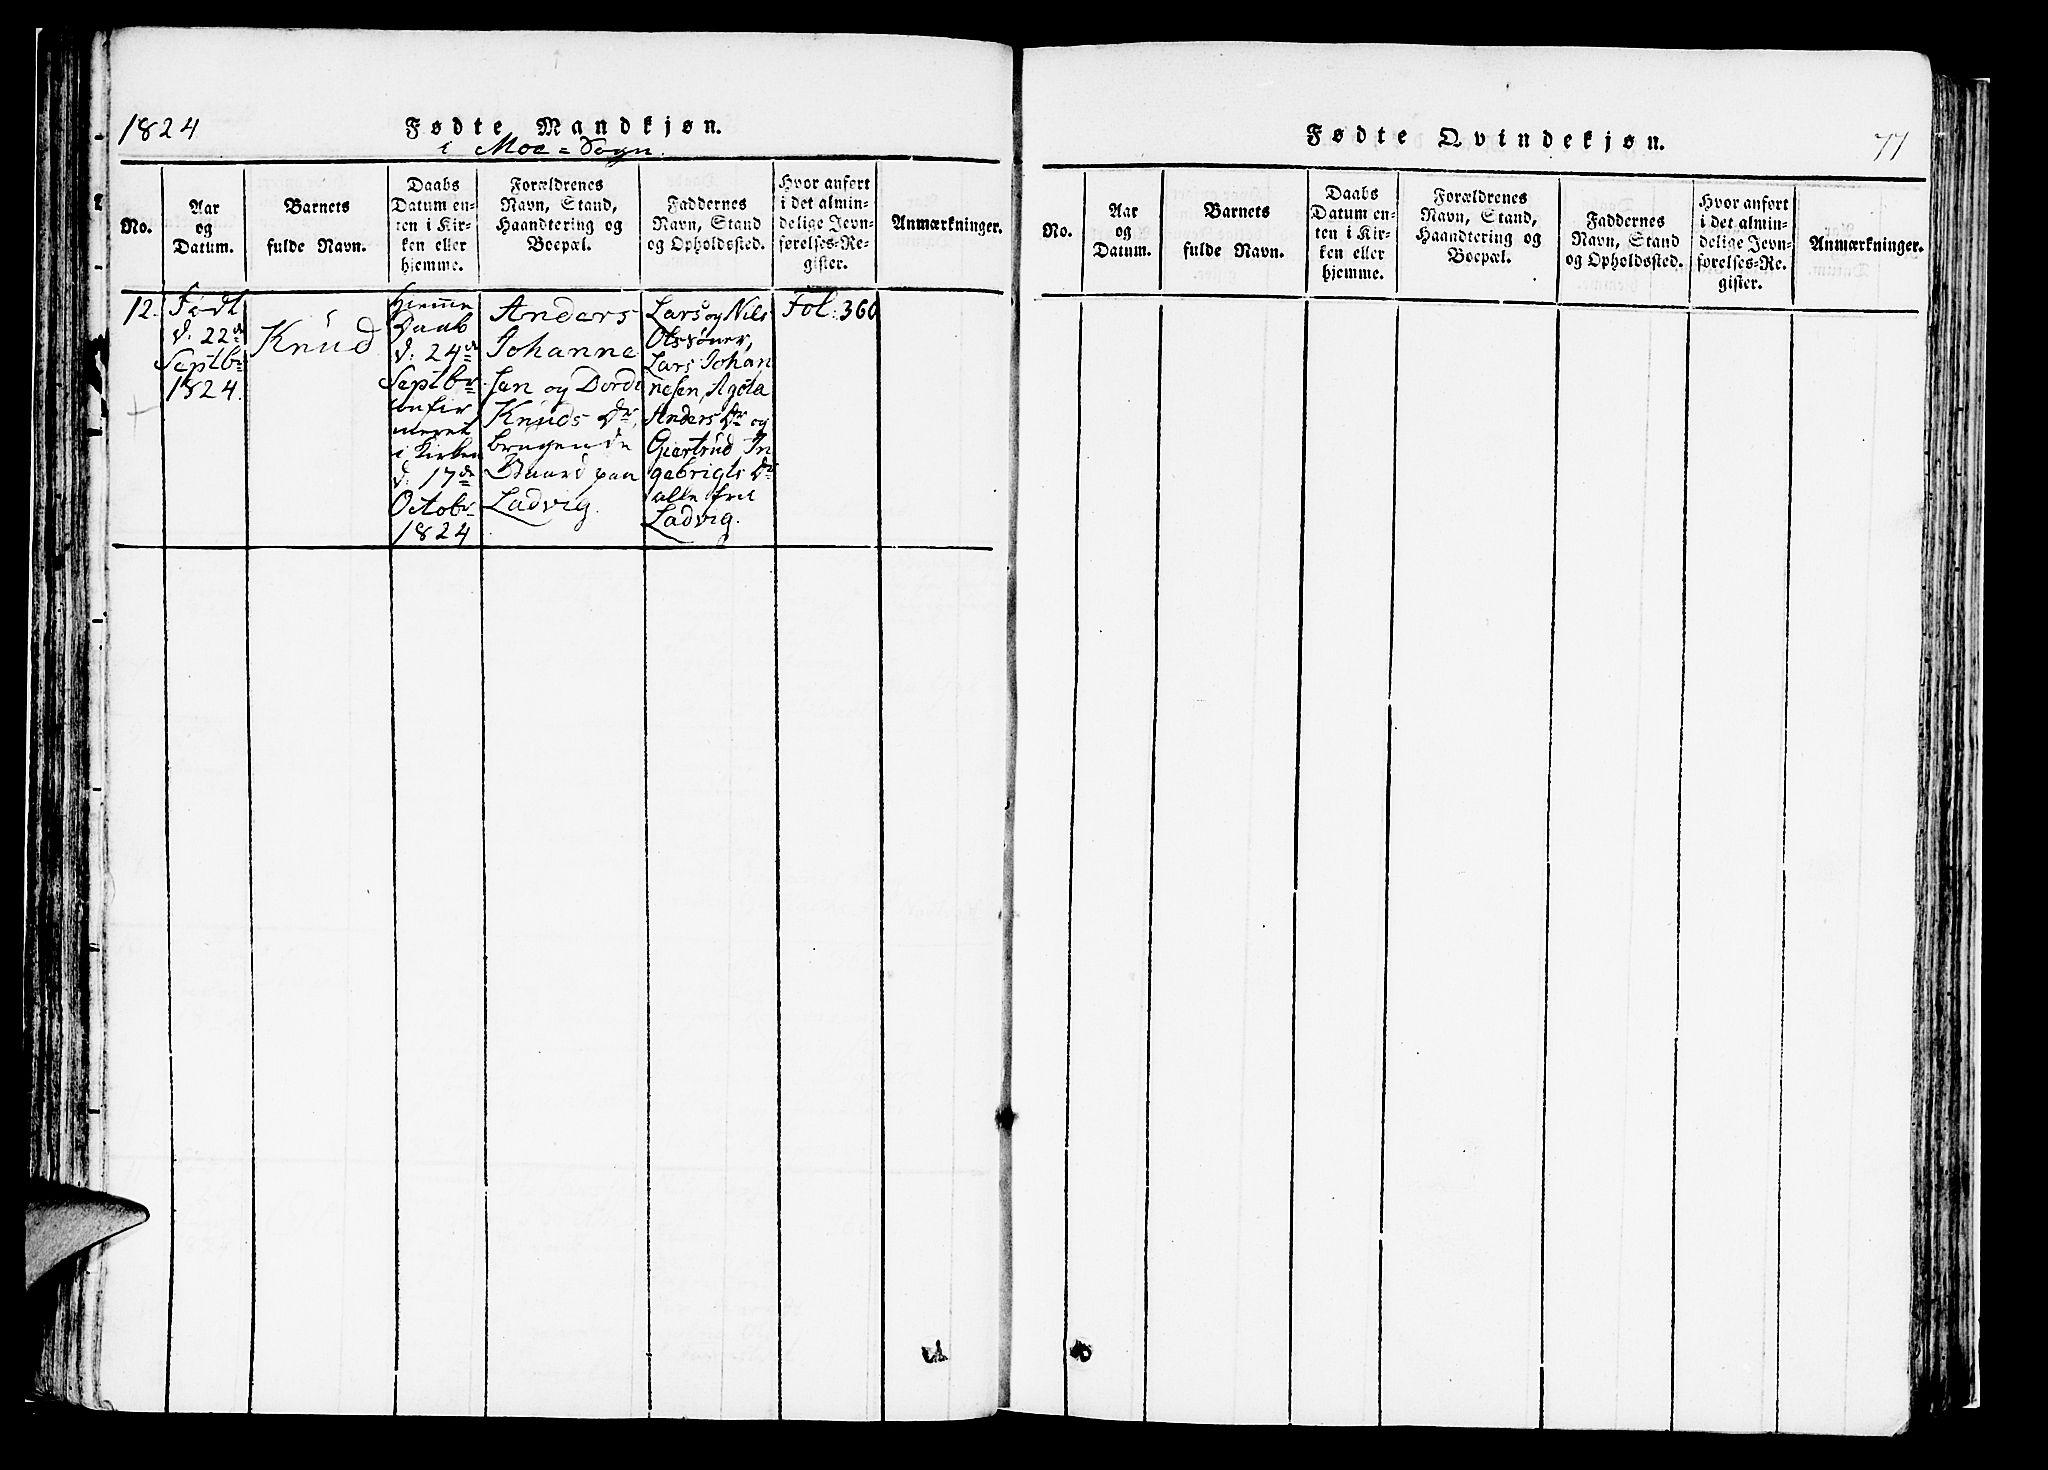 1824
Fødte Mandkjøn.
i Moe=Sogn.
No.
Aar
og
Datum.
Barnets
fulde Navn.
Daabs
Datum en-
ten i Kir-
ken eller
hjemme.
Forældrenes
Navn, Stand,
Haandtering og
Boepæl.
Faddernes
Navn, Stand
og Opholdssted.
Hvor anført
i det almin-
delige Jevn-
førelses-Re-
gister.
Anmærkninger.
12.
Født
d: 22de
Septbr
1824.
Knud
hjemme
Daab
d: 24de
Septbr.
confir
meret
i Kirken
d: 17de
Octobr
1824
Anders
Johanne
sen og Dorde
Knuds Dr,
brugende
Baard paa
Ladvig.
Lars og Nils
Olssøner,
Lars Johan
nesen, Agata
Anders Dr og
Giertrud In
gebrigts Dr
alle fra
Ladvig.
Fol: 360
Fødte Qvindekjøn.
77
No.
Aar
og
Datum.
Barnets
fulde Navn.
Daabs
Datum en-
ten i Kir-
ken eller
hjemme.
Forældrenes
Navn, Stand,
Haandtering og
Boepæl.
Faddernes
Navn, Stand
og Opholdssted.
Hvor anført
i det almin-
delige Jevn-
førelses-Re-
gister.
Anmærkninger.